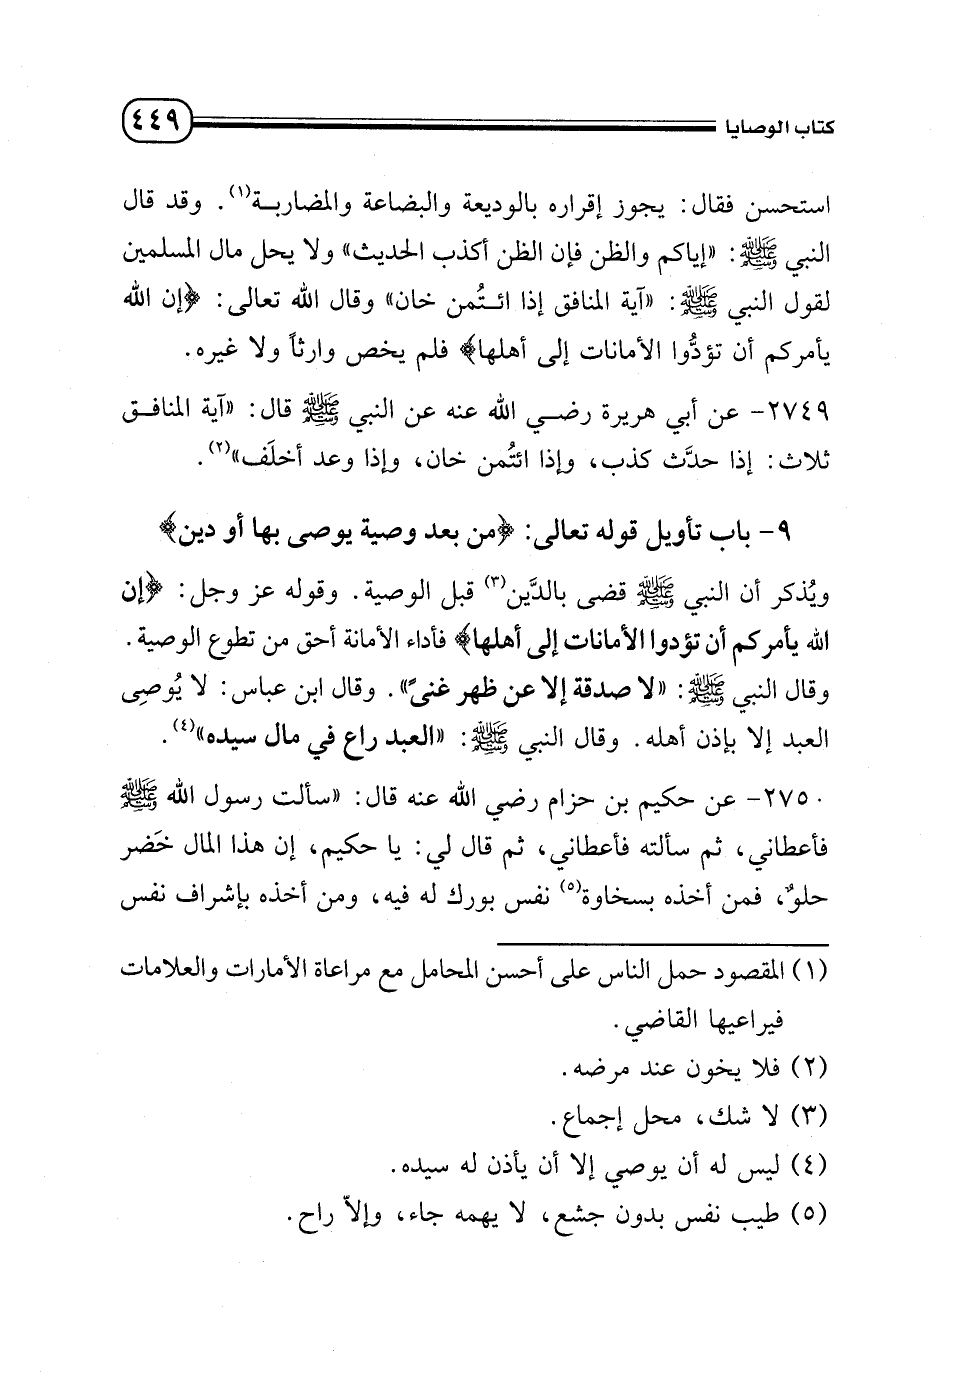 كتاب الوصايا ٤٤٩
استحسن فقال: يجوز إقراره بالوديعة والبضاعة والمضاربة(١). وقد قال
النبي ﷺ: «إياكم والظن فإن الظن أكذب الحديث» ولا يحل مال المسلمين
لقول النبي ﷺ: «آية المنافق إذا ائتُمن خان» وقال الله تعالى: ﴿إن الله
يأمركم أن تؤدُّوا الأمانات إلى أهلها﴾ فلم يخص وارثاً ولا غيره.
٢٧٤٩- عن أبي هريرة رضي الله عنه عن النبي ﷺ قال: «آية المنافق
ثلاث: إذا حدَّث كذب، وإذا ائتُمن خان، وإذا وعد أخلَف»(٢).
٩- باب تأويل قوله تعالى: ﴿من بعد وصية يوصى بها أو دين﴾
ويُذكر أن النبي ﷺ قضى بالدَّين(٣) قبل الوصية. وقوله عز وجل: ﴿إن
الله يأمركم أن تؤدوا الأمانات إلى أهلها﴾ فأداء الأمانة أحق من تطوع الوصية.
وقال النبي ﷺ: «لا صدقة إلا عن ظهر غنىً». وقال ابن عباس: لا يُوصِى
العبد إلا بإذن أهله. وقال النبي ﷺ: «العبد راع في مال سيده»(٤).
٢٧٥٠- عن حكيم بن حزام رضي الله عنه قال: «سألت رسول الله ﷺ
فأعطاني، ثم سألته فأعطاني، ثم قال لي: يا حكيم، إن هذا المال خَضر
حلوٌ، فمن أخذه بسخاوة(٥) نفس بورك له فيه، ومن أخذه بإشراف نفس
(١) المقصود حمل الناس على أحسن المحامل مع مراعاة الأمارات والعلامات
فيراعيها القاضي.
(٢) فلا يخون عند مرضه.
(٣) لا شك، محل إجماع.
(٤) ليس له أن يوصي إلا أن يأذن له سيده.
(٥) طيب نفس بدون جشع، لا يهمه جاء، وإلاّ راح.